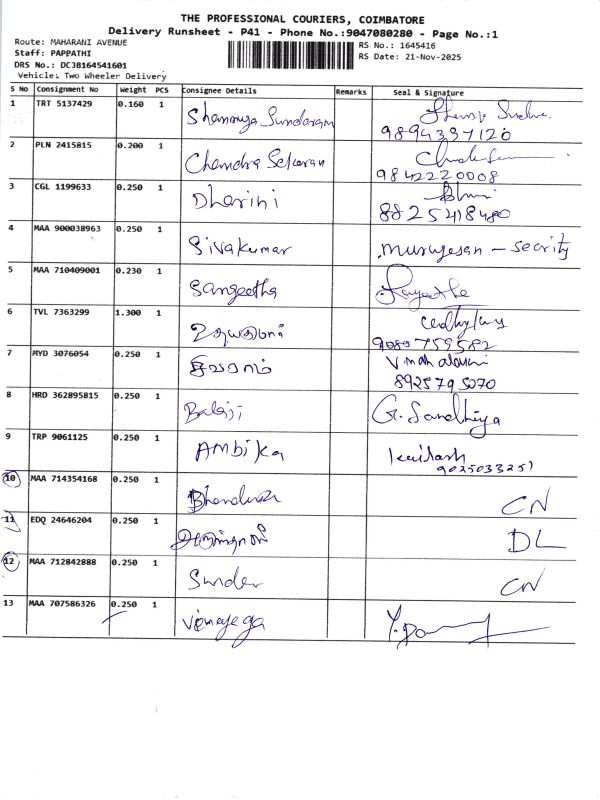 THE PROFESSIONAL COURIERS, COIMBATORE
Delivery Runsheet - P41 - Phone No.:9047080280 - Page No.:1
Route: MAHARANI AVENUE
RS No.: 1645416
Staff: PAPPATHI
RS Date: 21-Nov-2025
DRS No.: DCJB164541601
Vehicle: Two Wheeler Delivery
S No Consignment No Weight PCS Consignee Details Remarks Seal & Signature
1 TRT 5137429 0.160 1 Shanmuga Sundaram
9894397120
2 PLN 2415815 0.200 1 Chandra Sekaran
9842220008
3 CGL 1199633 0.250 1 Dharini
8825418480
4 MAA 900038963 0.250 1 Sivakumar Murugesan - Secrity
5 MAA 710409001 0.230 1 Sangeetha
6 TVL 7363299 1.300 1 உதயகுமார்
9080759582
7 MYD 3076054 0.250 1 சிவராம்
8925795070
8 HRD 362895815 0.250 1 Balaji G. Sandhiya
9 TRP 9061125 0.250 1 Ambika
9025033251
10 MAA 714354168 0.250 1 CN
11 EDQ 24646204 0.250 1 DL
12 MAA 712842888 0.250 1 Sunder CN
13 MAA 707586326 0.250 1 Vinayega